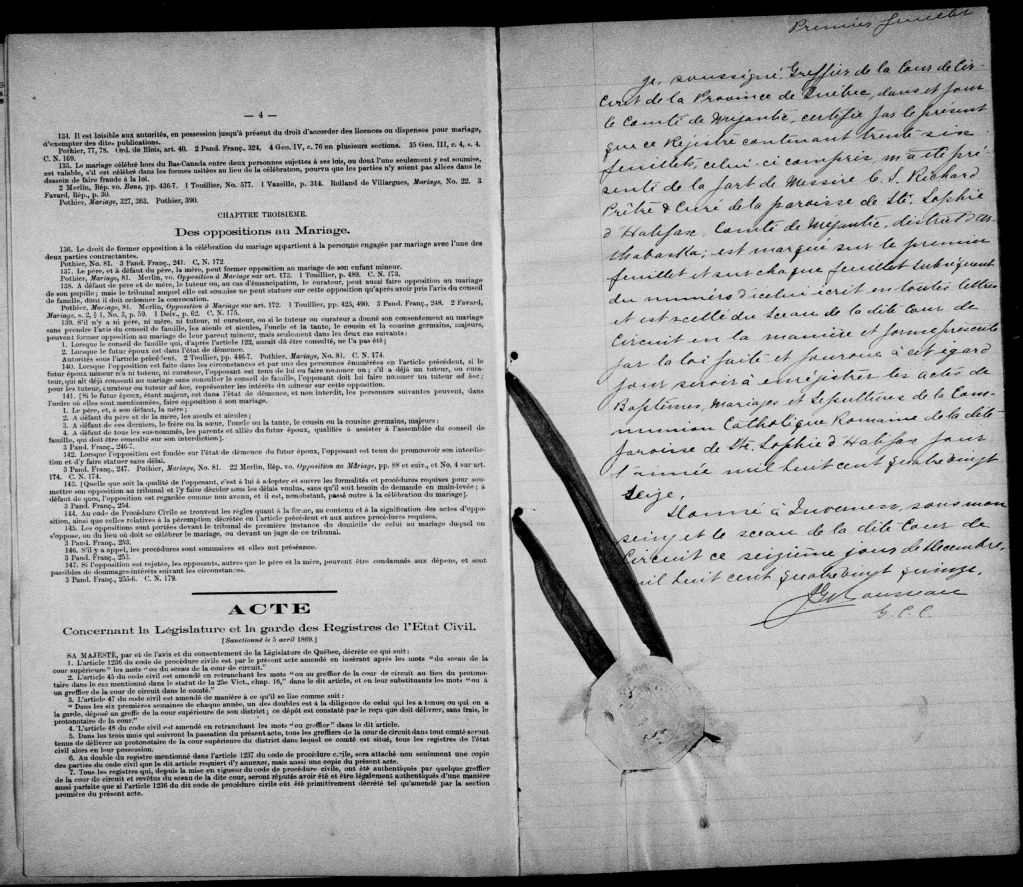 — 4 —
134. Il est loisible aux autorités, en possession jusqu'à présent du droit d'accorder des licences ou dispenses pour mariage,
d'exempter des dites publications.
Pothier, 77, 78. Ord. de Blois, art. 40. 2 Pand. Franç., 324. 4 Geo. IV, c. 76 en plusieurs sections. 35 Geo. III, c. 4, s. 4.
C. N. 169.
135. Le mariage célébré hors du Bas-Canada entre deux personnes sujettes à ses lois, ou dont l'une seulement y est soumise,
est valable, s'il est célébré dans les formes usitées au lieu de la célébration, pourvu que les parties n'y soient pas allées dans le
dessein de faire fraude à la loi.
2 Merlin, Rép. vo. Bans, pp. 436-7. 1 Touillier, No. 577. 1 Vazeille, p. 314. Rolland de Villargues, Mariage, No. 22. 3
Favard, Rép., p. 30.
Pothier, Mariage, 327, 363. Pothier, 390.
CHAPITRE TROISIÈME.
Des oppositions au Mariage.
136. Le droit de former opposition à la célébration du mariage appartient à la personne engagée par mariage avec l'une des
deux parties contractantes.
Pothier, No. 81. 3 Pand. Franç., 241. C. N. 172.
137. Le père, et à défaut du père, la mère, peut former opposition au mariage de son enfant mineur.
Pothier, Mariage, 81. Merlin, vo. Opposition au Mariage sur art. 173. 1 Touillier, p. 489. C. N. 173.
138. A défaut de père et de mère, le tuteur ou, au cas d'émancipation, le curateur, peut aussi faire opposition au mariage
de son pupille; mais le tribunal auquel elle est soumise ne peut statuer sur cette opposition qu'après avoir pris l'avis du conseil
de famille, dont il doit ordonner la convocation.
Pothier, Mariage, 81. Merlin, Opposition à Mariage sur art. 172. 1 Touillier, pp. 425, 490. 3 Pand. Franç., 248. 2 Favard,
Mariage, s. 2, § 1, No. 3, p. 59. 1 Delv., p. 62. C. N. 175.
139. S'il n'y a ni père, ni mère, ni tuteur, ni curateur, ou si le tuteur ou curateur a donné son consentement au mariage
sans prendre l'avis du conseil de famille, les aïeuls et aïeules, l'oncle et la tante, le cousin et la cousine germains, majeurs,
peuvent former opposition au mariage de leur parent mineur, mais seulement dans les deux cas suivants:
1. Lorsque le conseil de famille qui, d'après l'article 122, aurait dû être consulté, ne l'a pas été;
2. Lorsque le futur époux est dans l'état de démence.
Autorités sous l'article précédent. 2 Touillier, pp. 446-7. Pothier, Mariage, No. 81. C. N. 174.
140. Lorsque l'opposition est faite dans les circonstances et par une des personnes énumérées en l'article précédent, si le
futur époux mineur n'a ni tuteur, ni curateur, l'opposant est tenu de lui en faire nommer un; s'il a déjà un tuteur, ou curateur,
qui ait déjà consenti au mariage sans consulter le conseil de famille, l'opposant doit lui faire nommer un tuteur ad hoc;
pour les tuteur, curateur ou tuteur ad hoc, représenter les intérêts du mineur sur cette opposition.
141. [Si le futur époux, étant majeur, est dans l'état de démence, et non interdit, les personnes suivantes peuvent, dans
l'ordre où elles sont mentionnées, faire opposition à son mariage.
1. Le père, et, à son défaut, la mère;
2. A défaut du père et de la mère, les aïeuls et aïeules;
3. A défaut de ces derniers, le frère ou la sœur, l'oncle ou la tante, le cousin ou la cousine germains, majeurs;
4. A défaut de tous les sus-nommés, les parents et alliés du futur époux, qualifiés à assister à l'assemblée du conseil de
famille, qui doit être consulté sur son interdiction].
3 Pand. Franç., 246-7.
142. Lorsque l'opposition est fondée sur l'état de démence du futur époux, l'opposant est tenu de promouvoir son interdiction
et d'y faire statuer sans délai.
3 Pand. Franç., 247. Pothier, Mariage, No. 81. 22 Merlin, Rép. vo. Opposition au Mariage, pp. 88 et suiv., et No. 4 sur art.
174. C. N. 174.
143. [Quelle que soit la qualité de l'opposant, c'est à lui à adopter et suivre les formalités et procédures requises pour soumettre
son opposition au tribunal et l'y faire décider sous les délais voulus, sans qu'il soit besoin de demande en main-levée; à
défaut de quoi, l'opposition est regardée comme non avenu, et il est, nonobstant, passé outre à la célébration du mariage].
3 Pand. Franç., 254.
144. Au code de Procédure Civile se trouvent les règles quant à la forme, au contenu et à la signification des actes d'opposition,
ainsi que celles relatives à la péremption décrétée en l'article précédent et aux autres procédures requises.
145. Les oppositions sont portées devant le tribunal de première instance du domicile de celui au mariage duquel on
s'oppose, ou du lieu où doit se célébrer le mariage, ou devant un juge de ce tribunal.
3 Pand. Franç., 253.
146. S'il y a appel, les procédures sont sommaires et elles ont préséance.
3 Pand. Franç., 253.
147. Si l'opposition est rejetée, les opposants, autres que le père et la mère, peuvent être condamnés aux dépens, et sont
passibles de dommages-intérêts suivant les circonstances.
3 Pand. Franç., 255-6. C. N. 179.
ACTE
Concernant la Législature et la garde des Registres de l'Etat Civil.
[Sanctionné le 5 avril 1869.]
SA MAJESTÉ, par et de l'avis et du consentement de la Législature de Québec, décrète ce qui suit:
1. L'article 1236 du code de procédure civile est par le présent acte amendé en insérant après les mots "du sceau de la
cour supérieure" les mots "ou du sceau de la cour de circuit."
2. L'article 45 du code civil est amendé en retranchant les mots "ou au greffier de la cour de circuit au lieu du protonotaire
dans le cas mentionné dans le statut de la 25e Vict., chap. 16," dans le dit article, et en leur substituants les mots "ou à
un greffier de la cour de circuit dans le comté."
3. L'article 47 du code civil est amendé de manière à ce qu'il se lise comme suit:
"Dans les six premières semaines de chaque année, un des doubles est à la diligence de celui qui les a tenus; ou qui en a
la garde, déposé au greffe de la cour supérieure de son district; ce dépôt est constaté par le reçu que doit délivrer, sans frais, le
protonotaire de la cour."
4. L'article 48 du code civil est amendé en retranchant les mots "ou greffier" dans le dit article.
5. Dans les trois mois qui suivront la passation du présent acte, tous les greffiers de la cour de circuit dans tout comté seront
tenus de délivrer au protonotaire de la cour supérieure du district dans lequel ce comté est situé, tous les registres de l'état
civil alors en leur possession.
6. Au double du registre mentionné dans l'article 1237 du code de procédure civile, sera attaché non seulement une copie
des parties du code civil que le dit article requiert d'y annexer, mais aussi une copie du présent acte.
7. Tous les registres qui, depuis la mise en vigueur du code de procédure civile, ont été authentiqués par quelque greffier
de la cour de circuit et revêtus du sceau de la dite cour, seront réputés avoir été et être légalement authentiqués d'une manière
aussi parfaite que si l'article 1236 du dit code de procédure civile eût été primitivement décrété tel qu'amendé par la section
première du présent acte.
Premier feuillet
Je, soussigné, Greffier de la Cour de Cir-
cuit de la Province de Québec, dans et pour
le Comté de Mégantic, certifie par le présent
que ce Registre contenant trente six
feuillets, celui-ci compris, m'a été pré
senté de la part de Messire C. J. Richard
Prêtre & Curé de la paroisse de Ste. Sophie
d'Halifax, Comté de Mégantic, district d'Ar-
thabaska; est marqué sur le premier
feuillet et sur chaque feuillet subséquent
du numéro d'icelui écrit en toutes lettres
et est scellé du sceau de la dite Cour de
Circuit en la manière et forme prescrite
par la loi faite et pourvue à cet égard
pour servir à enrégistrer les actes de
Baptêmes, Mariages et Sépultures de la Com-
munion Catholique Romaine de la dite
paroisse de Ste. Sophie d'Halifax, pour
l'année mil huit cent quatre vingt
Seize.
Donné à Inverness, sous mon
seing et le sceau de la dite Cour de
Circuit ce seizième jour de Décembre,
mil huit cent quatre vingt quinze.
Rousseau
G. C. C.